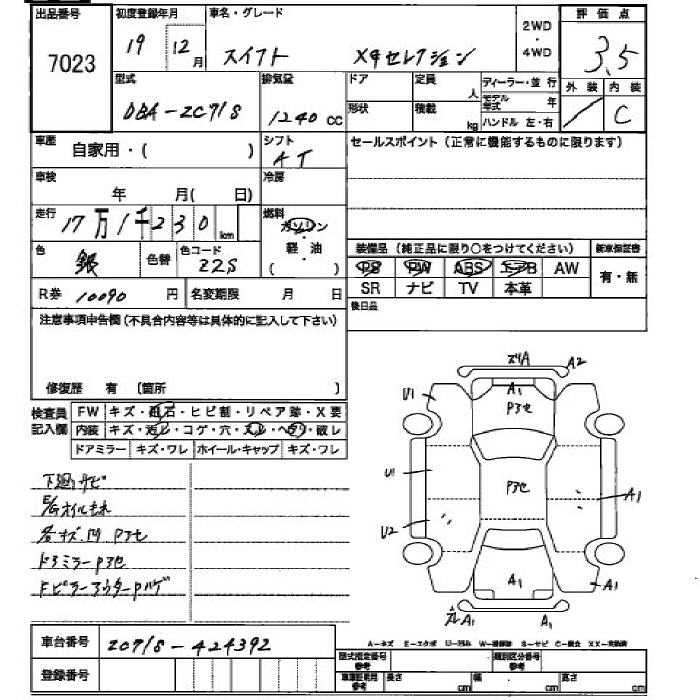 出品番号 初度登録年月 車名・グレード 2WD・4WD 評価点
7023 19 12月 スイフト XGセレクション 3.5
型式 排気量 ドア 定員 人 ディーラー・並行 外装 内装
DBA-ZC71S 1240cc 形状 積載 kg モデル年式 年 C
ハンドル 左・右
車歴 自家用・( ) シフト AT セールスポイント(正常に機能するものに限ります)
車検 年 月( 日) 冷房
走行 17万1千230km 燃料 ガソリン・軽油 ( )
色 銀 色替 色コード Z2S
装備品(純正品に限り○をつけてください) 新車保証書
PS PW ABS エアB AW 有・無
SR ナビ TV 本革
R券 10090円 名変期限 月 日 後日品
注意事項申告欄(不具合内容等は具体的に記入して下さい)
修復歴 有 〔箇所 〕
検査員記入欄 FW キズ・飛石・ヒビ割・リペア跡・X要
内装 キズ・汚レ・コゲ・穴・スレ・ヘタリ・破レ
ドアミラー キズ・ワレ ホイール・キャップ キズ・ワレ
下廻サビ
E/Gオイルもれ
各キズ.凹 Pアセ
ドアミラーPアセ
FピラーアウターPハゲ
ズリA A2
A1
U1 Pアセ
U1 Pアセ A1
U2
A1 A1
A1 A1
車台番号 ZC71S-424392
A-キズ E-エクボ U-凹み W-補修跡 S-サビ C-腐食 XX-交換済
登録番号 型式指定番号 参考 類別区分番号 参考
車庫証明用 参考 長さ cm 幅 cm 高さ cm